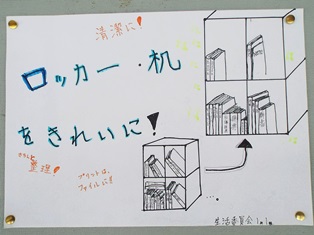 清潔に!
ロッカー・机
をきれいに!
整理!
プリントは、
ファイルに!!
生活委員会